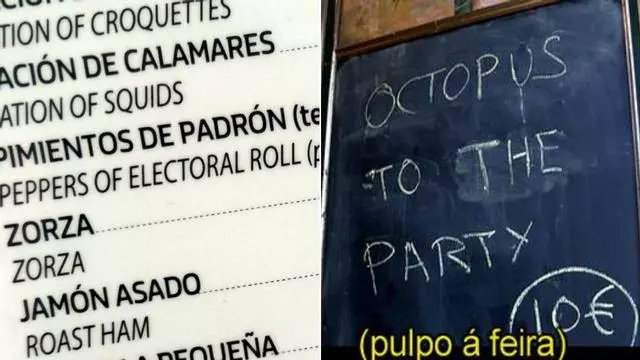 TION OF CROQUETTES
ACIÓN DE CALAMARES
ATION OF SQUIDS
PIMIENTOS DE PADRÓN (te
PEPPERS OF ELECTORAL ROLL (
ZORZA
ZORZA
JAMÓN ASADO
ROAST HAM
PEQUEÑA
OCTOPUS
TO THE
PARTY
10€
(pulpo á feira)